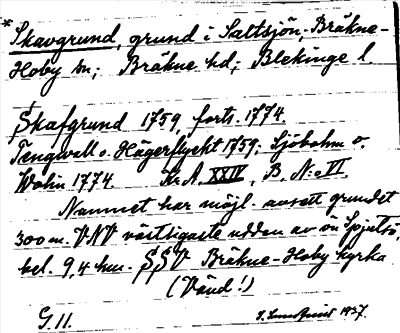 * Skavgrund, grund i Saltsjön; Bräkne-
Hoby sn; Bräkne hd; Blekinge l
Skafgrund 1759, forts. 1774.
Tengwall o. Hägerflycht 1759; Sjöbohm o.
Wahn 1774. Kr. A. XXIV, B, N:o VI
Namnet har möjl. avsett grundet
300 m. VNV västligaste udden av ön Spjutsö,
bel. 9,4 km. SSV Bräkne-Hoby kyrka
(Vänd!)
G. 11. J. Lundquist 1937.